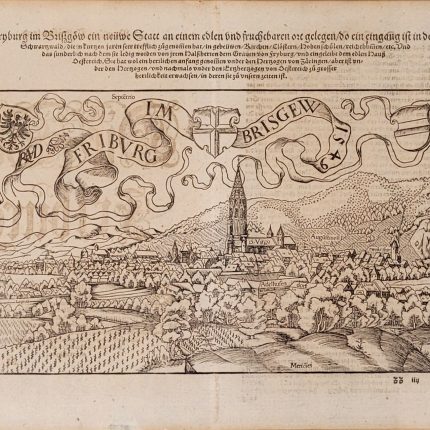 ryburg im Brißgöw ein neüwe Statt an einem edlen vnd fruchtbaren ort gelegen/do ein eingang ist in de
Schwartzwald/die in kurtzen jaren seer trefflich zůgenommen hat/in gebeüwen/Kirchen/Clöstern/Hohen schůlen/reichthůmen/etc. Vnd
das sunderlich nach dem sie ledig worden von jrem Halßherren den Grauen von Fryburg/ vnd eingeleibt dem edlen Hauß
Oesterreich. Sie hat wol ein herrlichen anfang genommen vnder den Hertzogen von Zäringen/aber ist vn
der den Hertzogen/vnd nachmals vnder den Ertzhertzogen von Oesterreich zů grosser
herrlichkeit erwachsen/in deren sie zů vnsern zeiten ist.
Septētrio
IM
BRISGEW
1549
FRIBVRG
Meridies
iiij